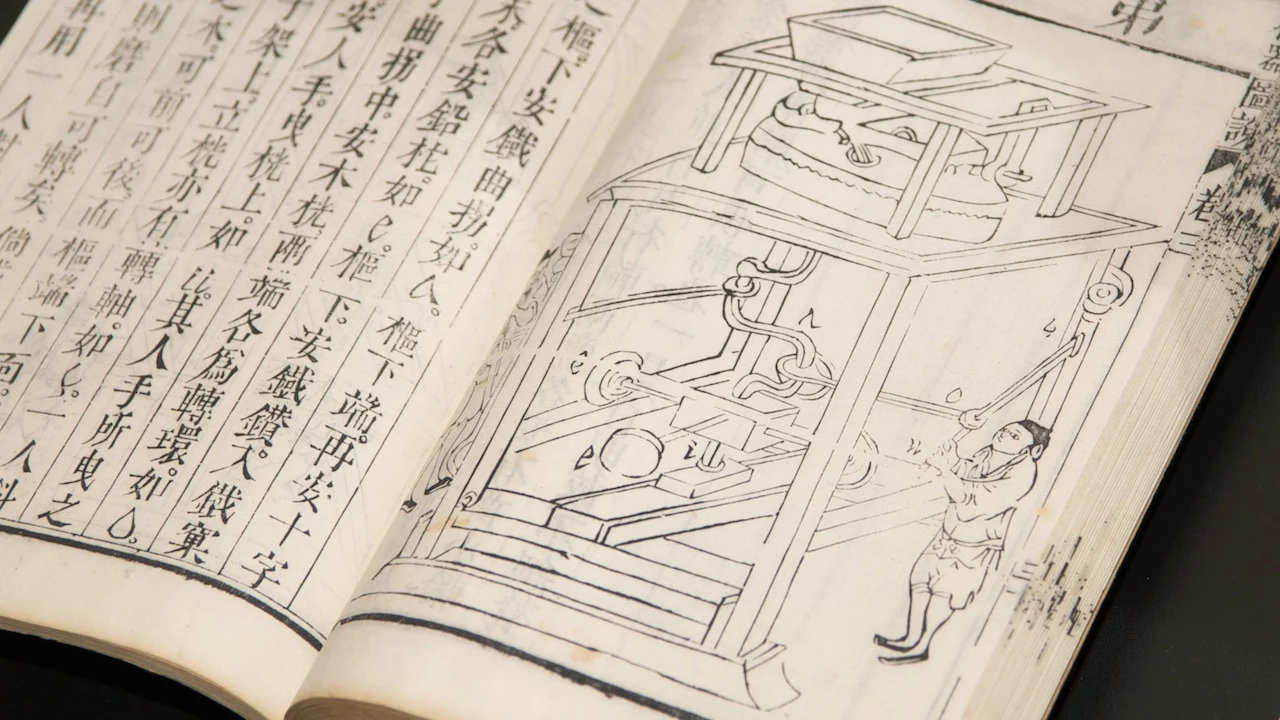 樞。下安鐵曲拐。如厶。樞下端。再安十字
木。各安鉛柁。如c。樞下。安鐵鑽。入鐵窠
曲拐中。安木桄。兩端各為轉環。如
安人手。曳桄上。如匕。其人手所曳之
架上。立桄亦有轉軸。如
一人
木。可前可後。而樞端下面。
則磨臼可轉矣。倘
再用一人
弟
圖說
卷三
e
c